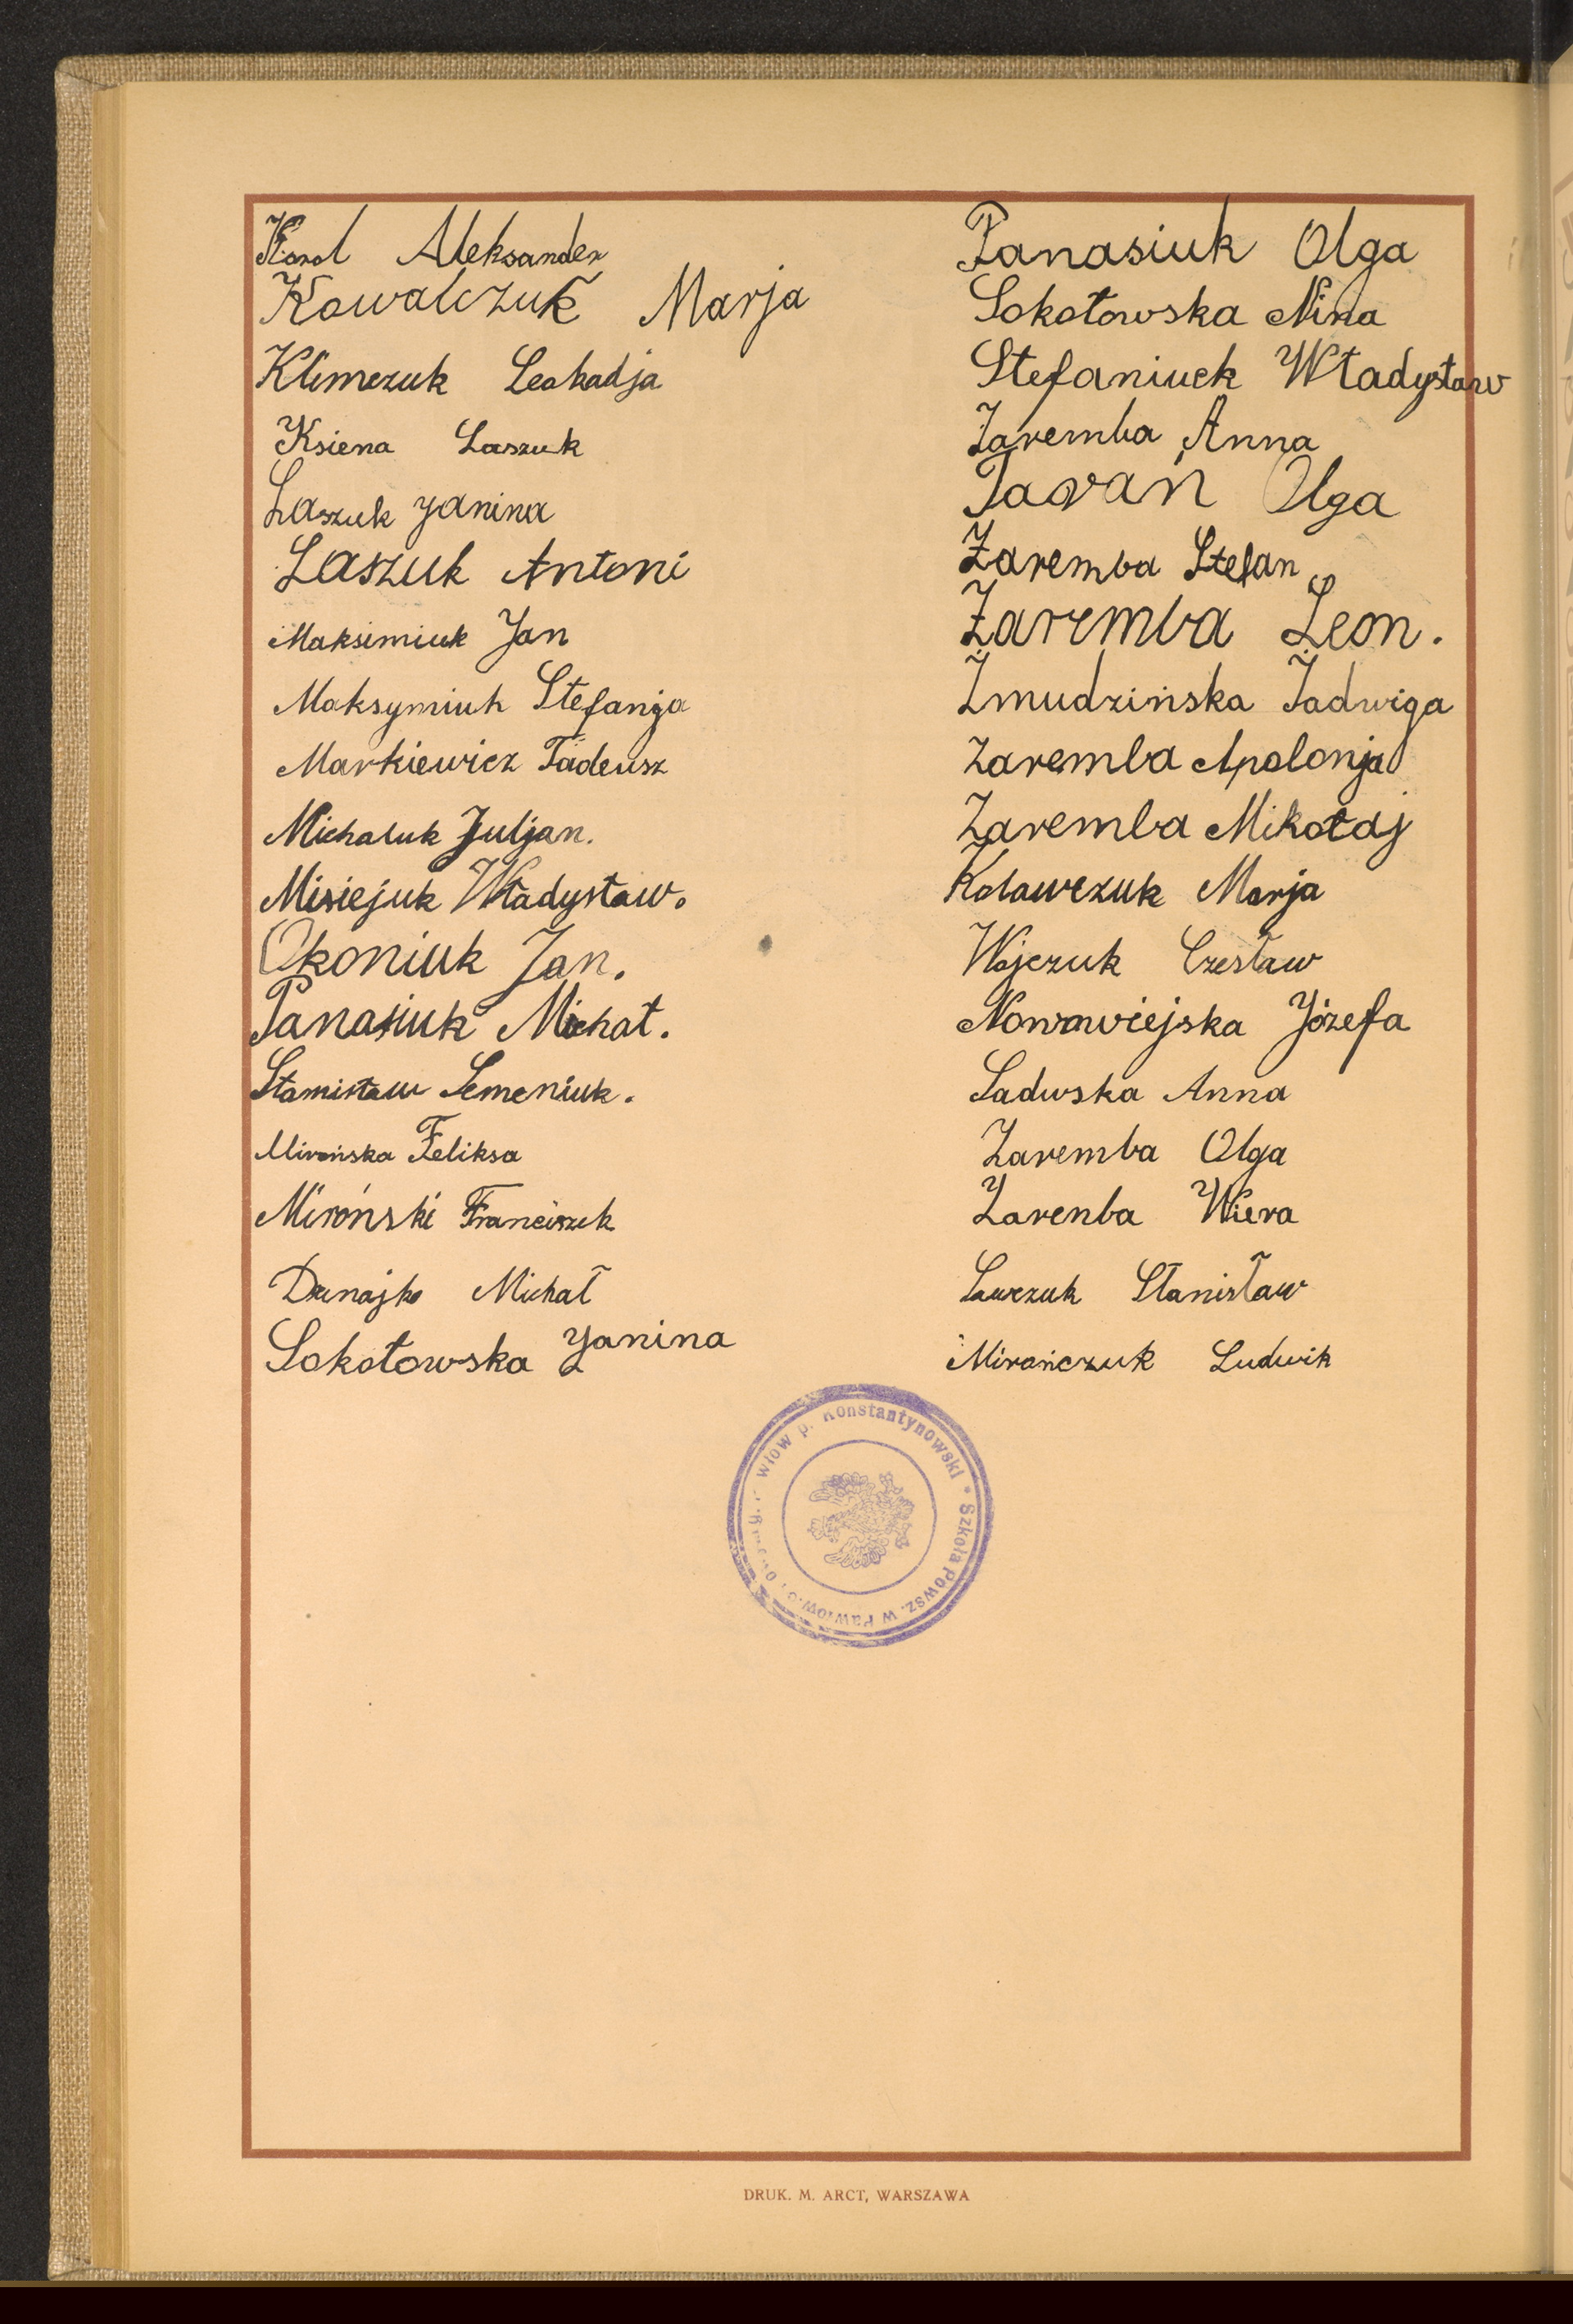 Karol Aleksander
Kowalczuk Marja
Klimczuk Leokadja
Ksiena Laszuk
Laszuk Janina
Laszuk Antoni
Maksimiuk Jan
Maksymiuk Stefanja
Markiewicz Tadeusz
Michaluk Juljan.
Misiejuk Władysław.
Okoniuk Jan.
Panasiuk Michał.
Stanisław Semeniuk.
Mirońska Feliksa
Miroński Franciszek
Dunajko Michał
Sokołowska Janina
Panasiuk Olga
Sokołowska Nina
Stefaniuek Władysław
Zaremba Anna
Olga
Zaremba Stefan
Zaremba Leon.
Żmudzińska Jadwiga
Zaremba Apolonja
Zaremba Mikołaj
Kolawczuk Marja
Wojczuk Czesław
Nowowiejska Józefa
Sadwska Anna
Zaremba Olga
Zarenba Wiera
Sawczuk Stanisław
Mirończuk Ludwik
p. Konstantynowski * Szkoła Powsz. w
DRUK. M. ARCT, WARSZAWA